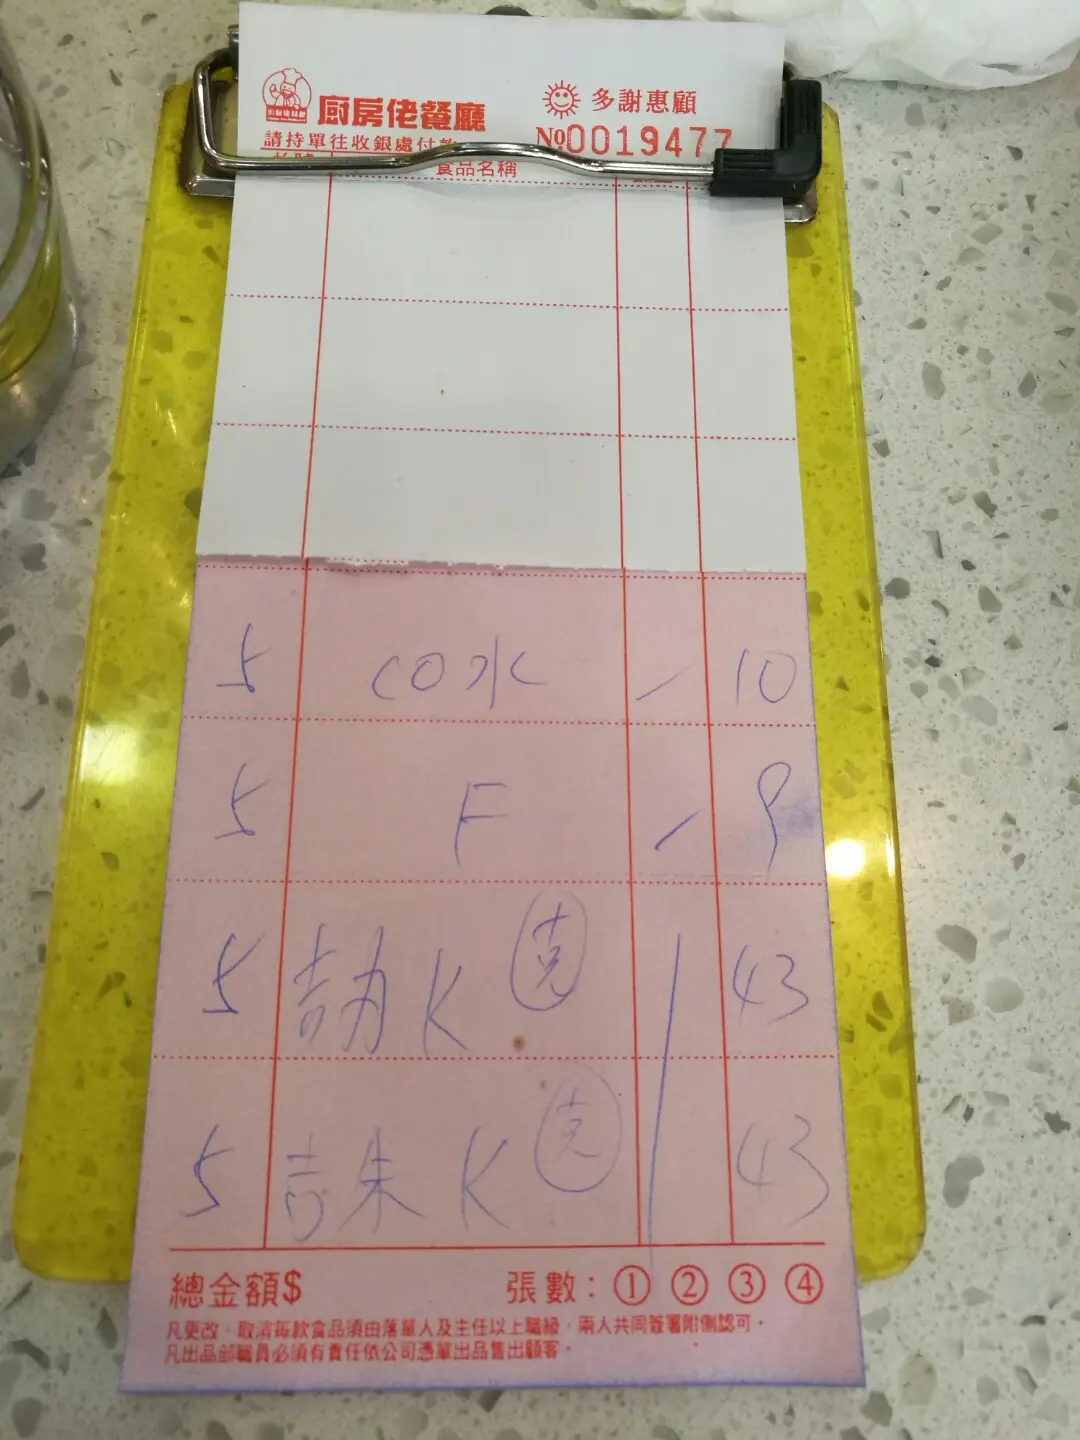 廚房佬餐廳
多謝惠顧
請持單往收銀處付款
No 0019477
食品名稱
5 CO水 / 10
5 F / 9
5 吉力 K 克 / 43
5 吉朱 K 克 / 43
總金額$ 張數：① ② ③ ④
凡更改、取消每款食品須由落單人及主任以上職級、兩人共同簽署附側認可。
凡出品部職員必須有責任依公司憑單出品售出顧客。